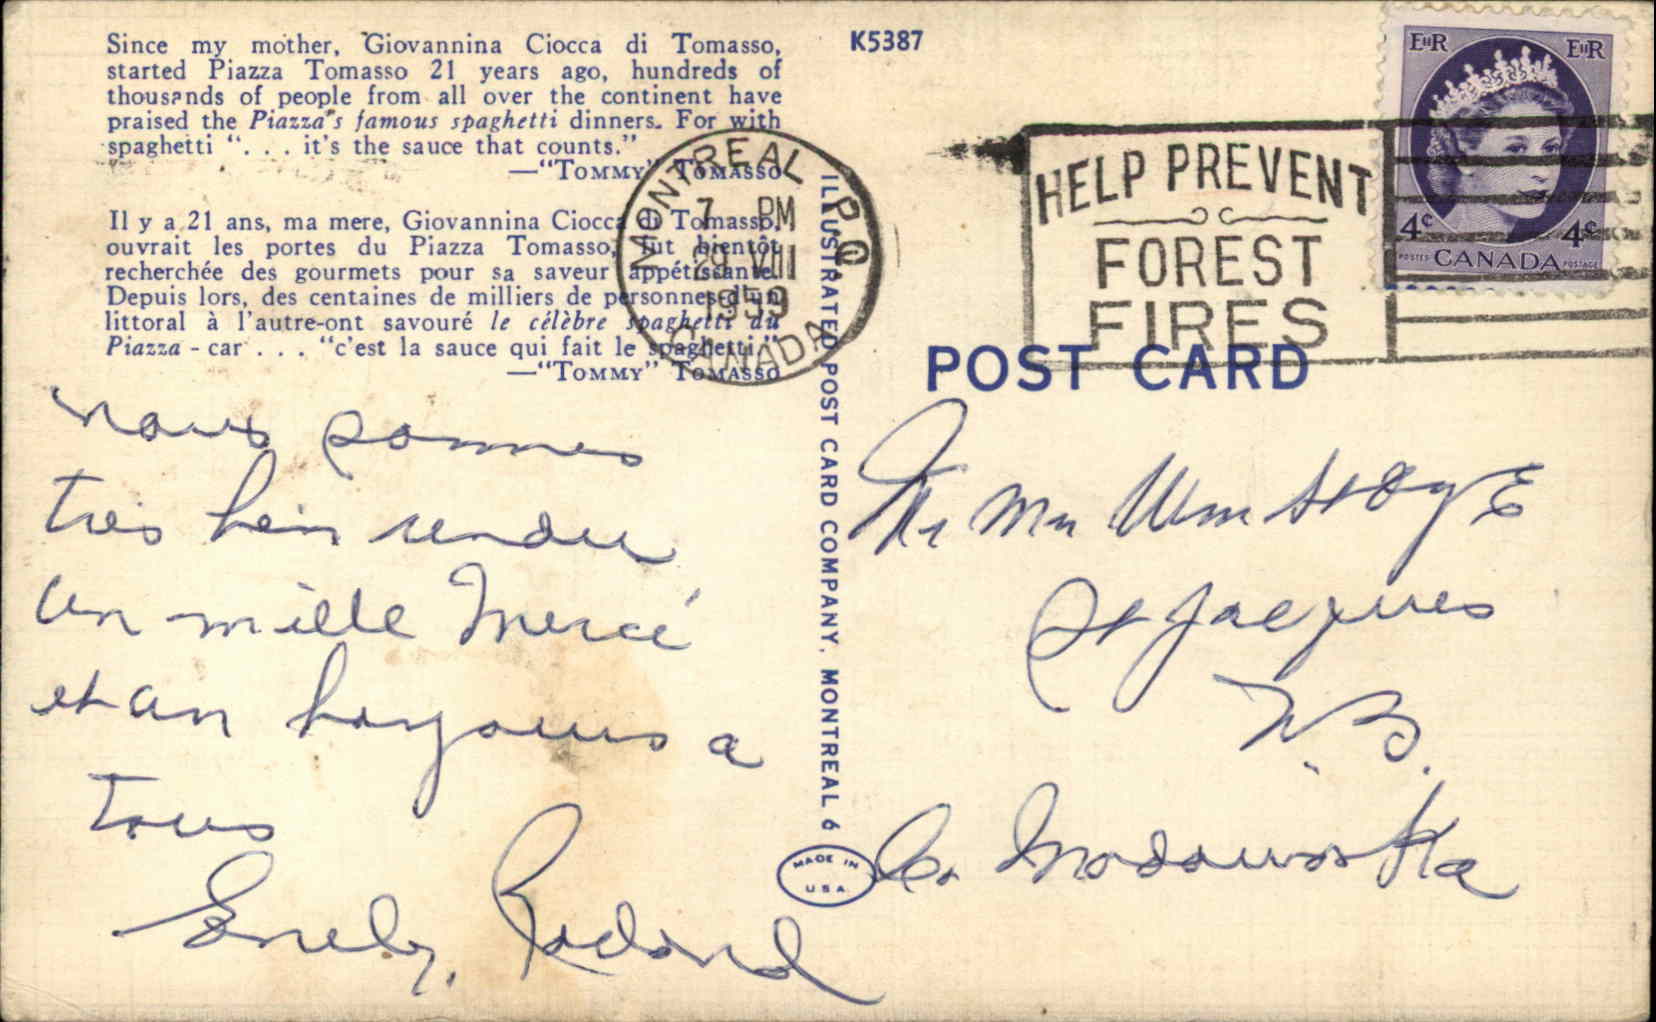 Since my mother, Giovannina Ciocca di Tomasso,
started Piazza Tomasso 21 years ago, hundreds of
thousands of people from all over the continent have
praised the Piazza's famous spaghetti dinners. For with
spaghetti “. . . it's the sauce that counts.”
—“TOMMY” TOMASSO
Il y a 21 ans, ma mere, Giovannina Ciocca di Tomasso,
ouvrait les portes du Piazza Tomasso, fut bientôt
recherchée des gourmets pour sa saveur appétissante.
Depuis lors, des centaines de milliers de personnes d'un
littoral à l'autre-ont savouré le célèbre spaghetti du
Piazza - car . . . “c'est la sauce qui fait le spaghetti.”
—“TOMMY” TOMASSO
K5387
MONTREAL P.Q.
7 PM
29 VIII
1959
CANADA
HELP PREVENT
FOREST
FIRES
EIIR EIIR
4c 4c
POSTES CANADA POSTAGE
POST CARD
ILLUSTRATED POST CARD COMPANY, MONTREAL 6
MADE IN
USA
nous sommes
tres bein rendu
un mille Merci
et an bonjours a
tous
Emely,
Mr Mrs Wm
St Jacques
N.B.
Co. Madawaska